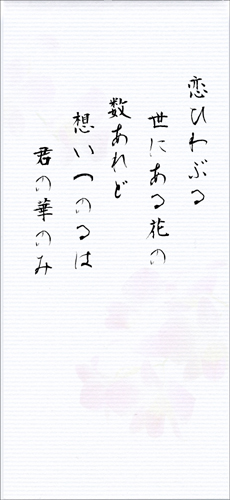 恋ひわぶる
世にある花の
数あれど
想いつのるは
君の華のみ